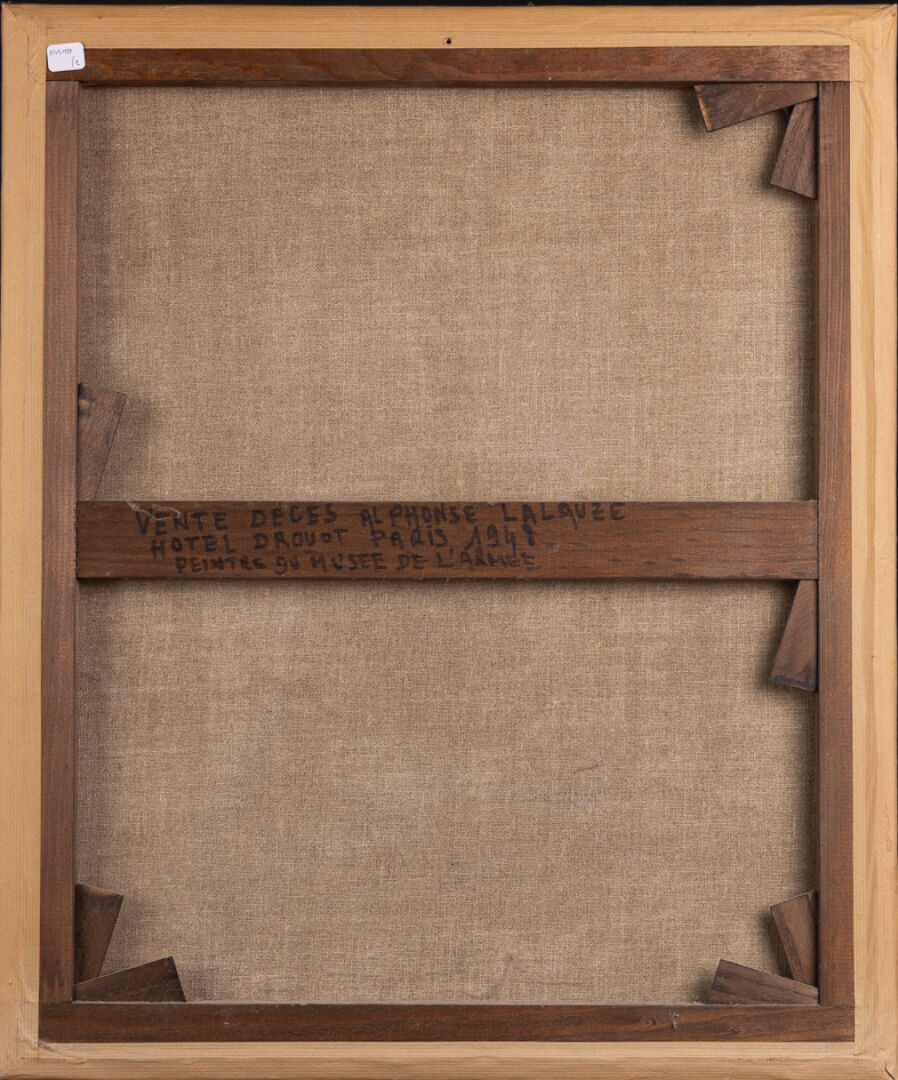 VENTE DECES ALPHONSE LALAUZE
HOTEL DROUOT PARIS 1948
PEINTRE DU MUSEE DE L'ARMEE